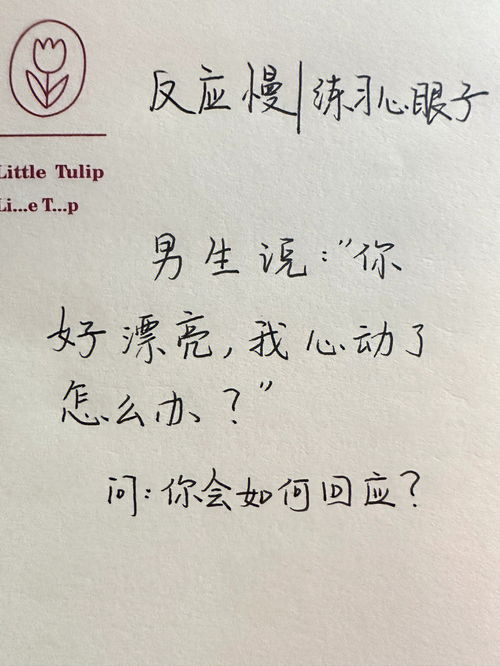 Little Tulip
Li...e T...p
反应慢|练习心眼子
男生说:“你
好漂亮,我心动了
怎么办?”
问:你会如何回应?